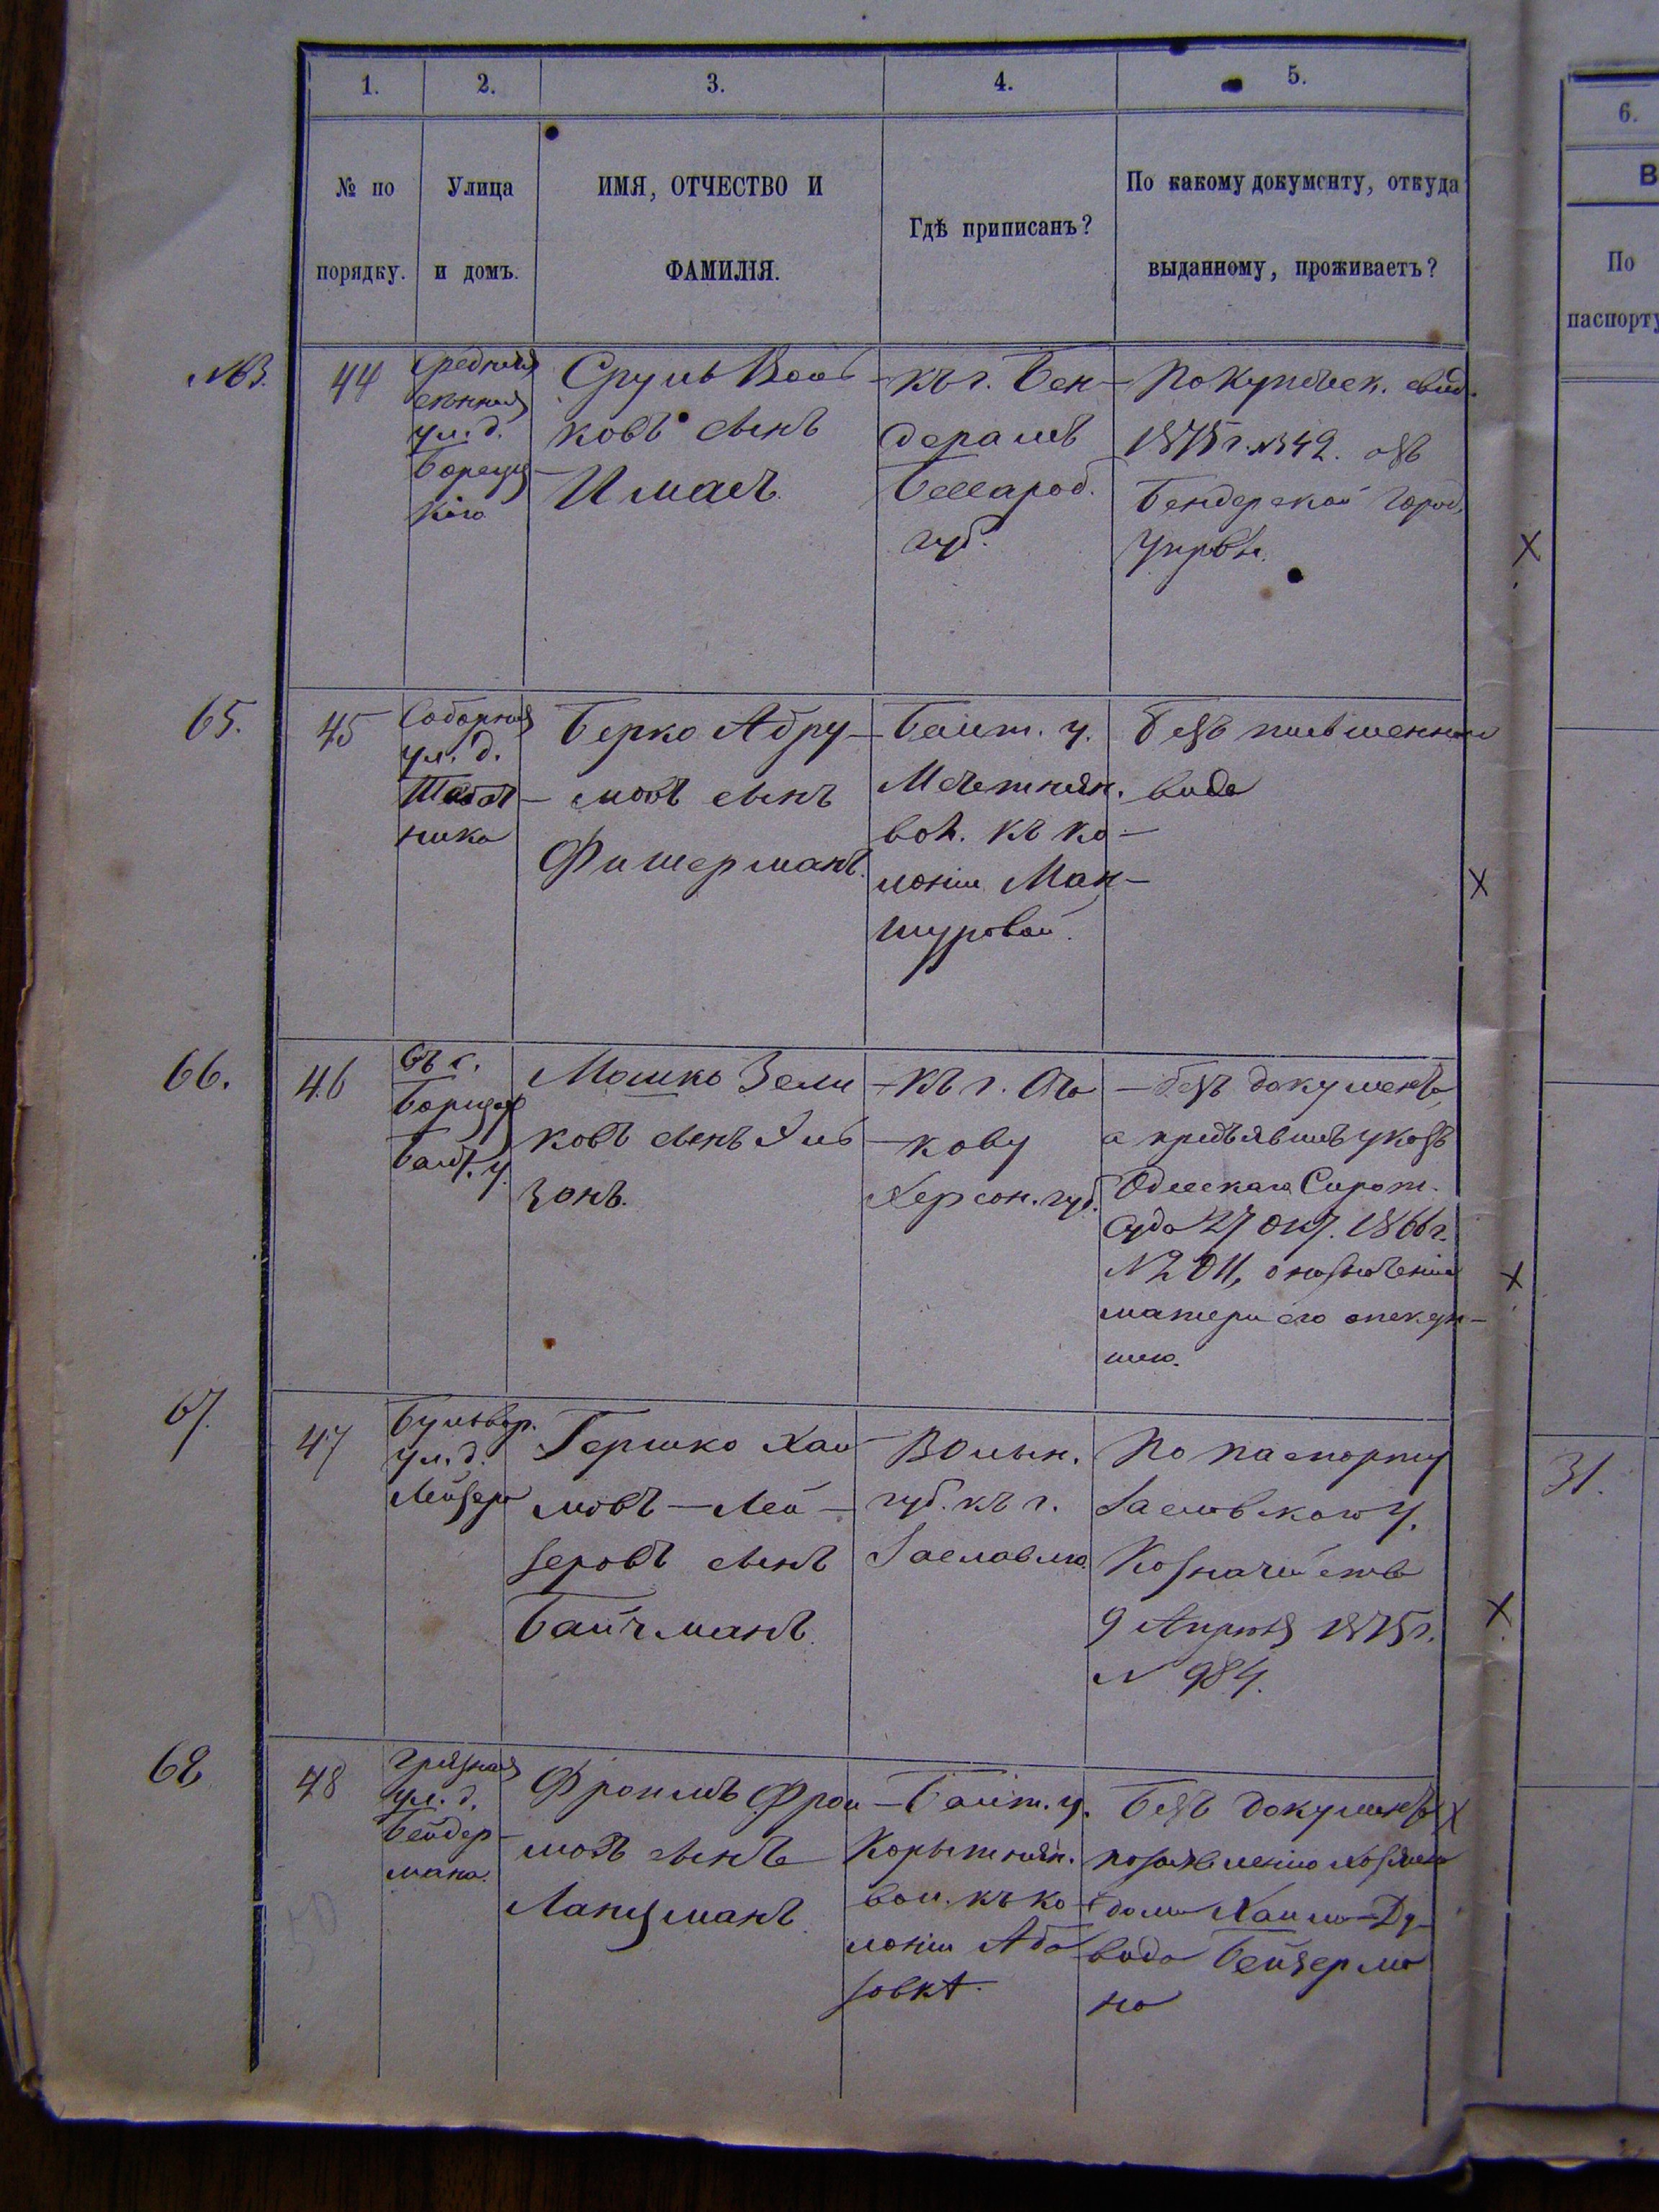 1.
2.
3.
4.
5.
6.
№ по
порядку.
Улица
и домъ.
ИМЯ, ОТЧЕСТВО И
ФАМИЛІЯ.
Гдѣ приписанъ?
По какому документу, откуда
выданному, проживаетъ?
В
По
паспорту
44
Средняя
ул. д.
Сруль Вол
ковъ сынъ
Имасъ.
къ г. Бен
дерамъ
Бессараб.
губ.
По купеческ. свид.
1875 г. № 342. изъ
Бендерской Город.
Управы.
65.
45
Соборная
ул. д.
ника
Берко Абру-
мовъ сынъ
Фишерманъ.
Балт. у.
Мечетнян.
вол. къ ко-
лоніи Ман-
шуровой.
безъ письменнаго
вида
66.
46
Въ с.
Балт. у.
Мошко Зели
ковъ сынъ Эль
зонъ.
къ г. Оча
кову
Херсон. губ.
безъ документа,
а предъявилъ указъ
Одесскаго Сирот.
Суда 27 Окт. 1866 г.
№ 2011, о назначеніи
матери его опекун-
шею.
67.
47
Бульвар.
ул. д.
Лейзера
Гершко Хаи
мовъ-Лей-
зеровъ сынъ
Байчманъ.
Волын.
губ. къ г.
Заславлю.
По паспорту
Заславскаго у.
Казначейства
9 Апрѣля 1875 г.
№ 984.
31.
68
48
Грязная
ул. д.
Бейдер-
мана.
Фроимъ Фрои-
мовъ сынъ
Ланцманъ.
Балт. у.
Корытнян.
вол. къ ко
лоніи Аба
зовкѣ.
Безъ документа
по заявленію хозяина
дома Хаима-Ду-
вида Бейдерма
на